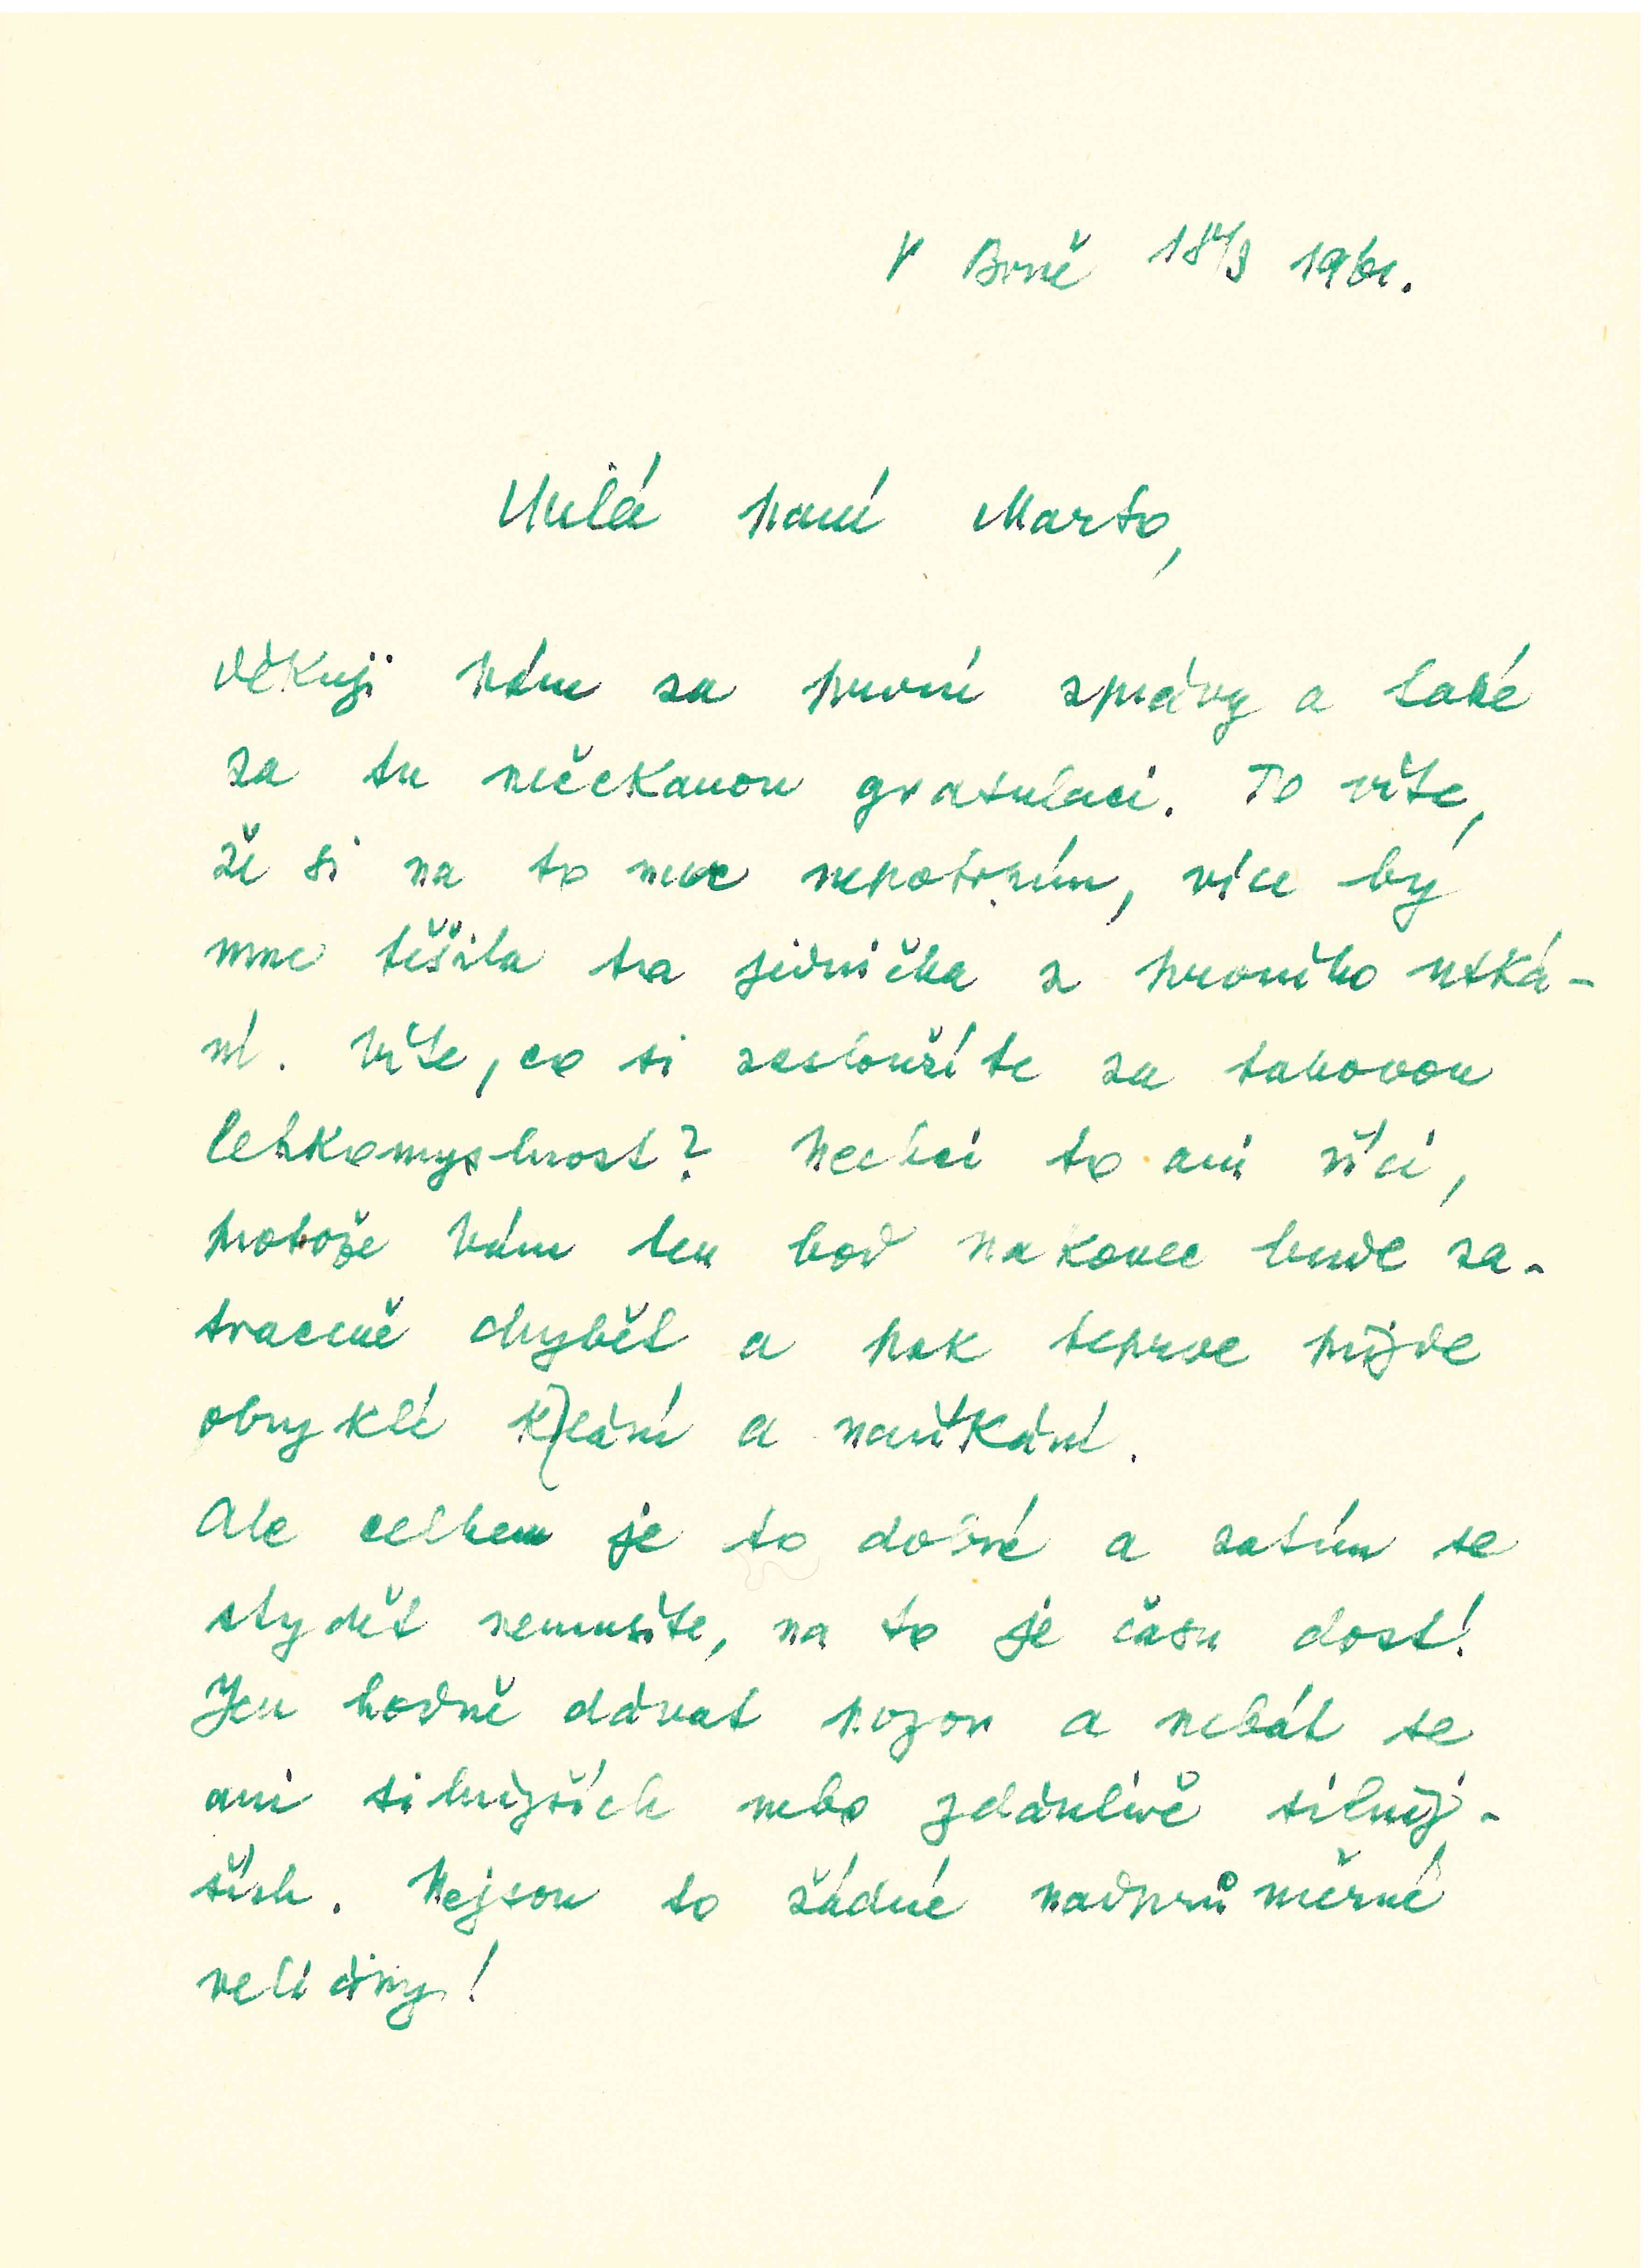 V Brně 18/9 1961.
Milá paní Marto,
děkuji Vám za první zprávy a také
za tu nečekanou gratulaci. To víte,
že si na to moc nepotrpím, více by
mne těšila ta jednička z prvního utká-
ní. Víte, co si zasloužíte za takovou
lehkomyslnost? Nechci to ani říci,
protože Vám ten bod nakonec bude za-
traceně chybět a pak teprve přijde
obvyklé klení a naříkání.
Ale celkem je to dobré a zatím se
stydět nemusíte, na to je času dost!
Jen hodně dávat pozor a nebát se
ani silnějších nebo zdánlivě silněj-
ších. Nejsou to žádné nadprůměrné
veličiny!